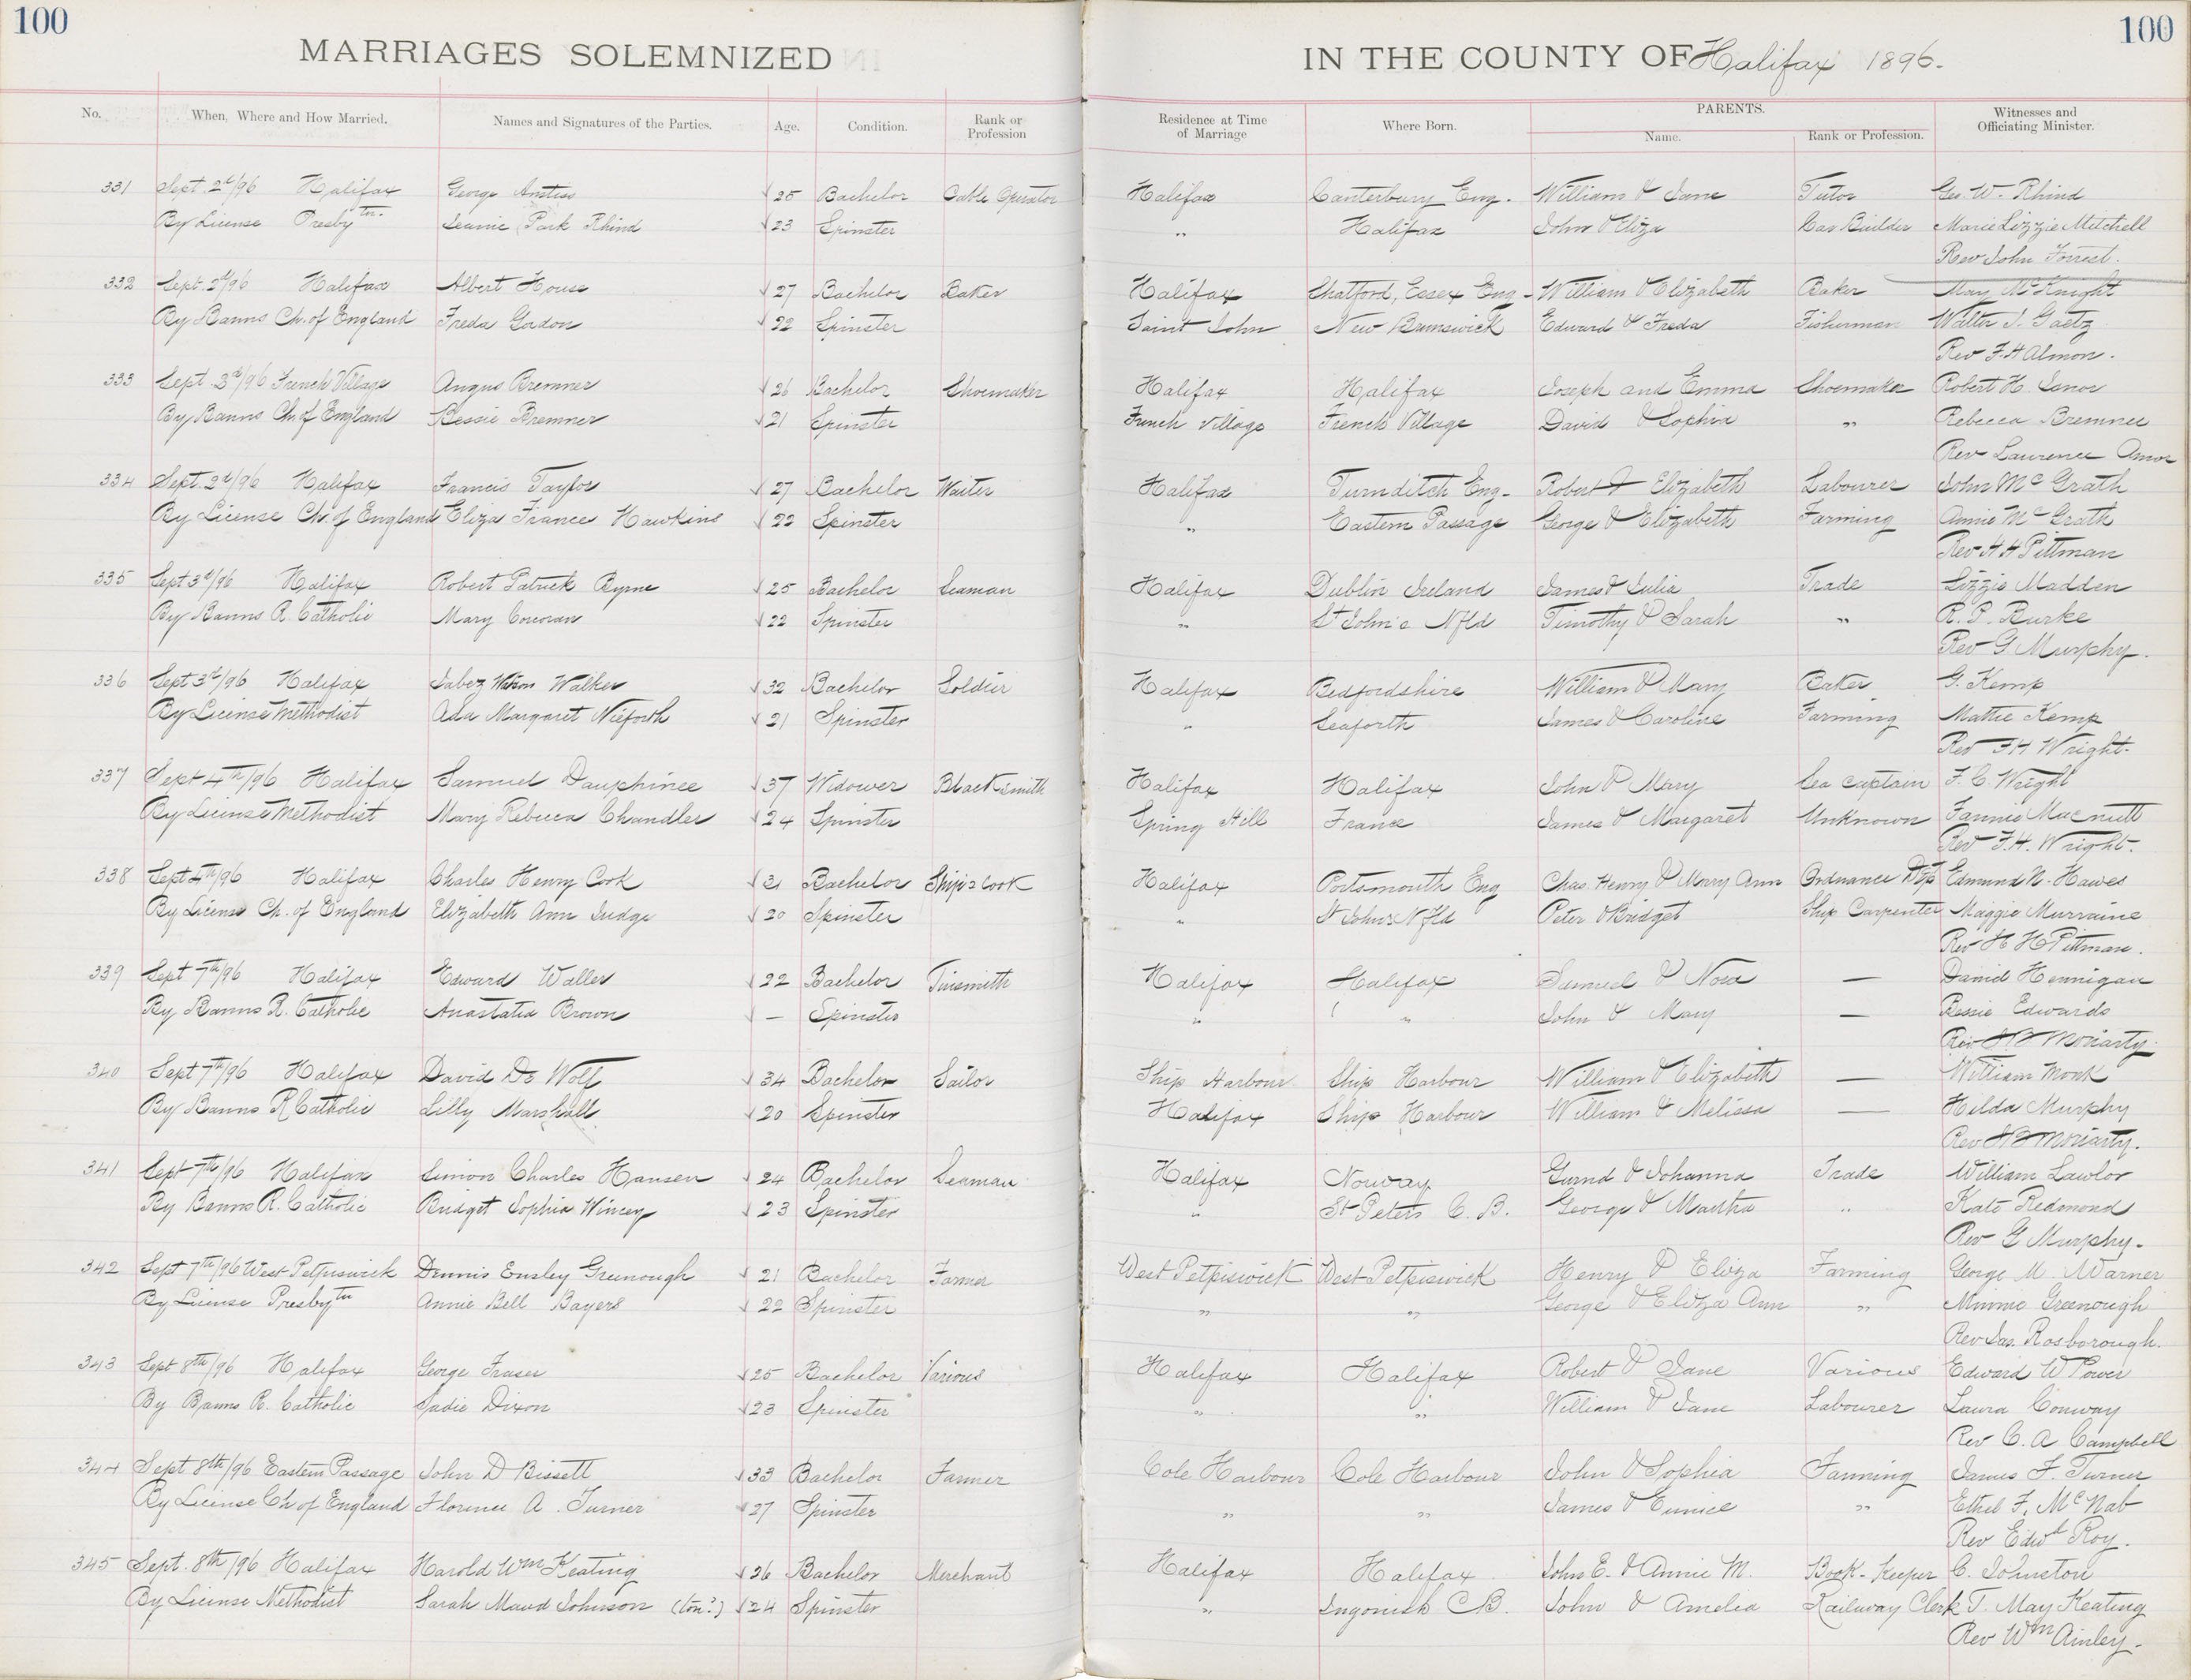 100
100
MARRIAGES SOLEMNIZED IN THE COUNTY OF Halifax 1896.
No. When, Where and How Married. Names and Signatures of the Parties. Age. Condition. Rank or Profession Residence at Time of Marriage Where Born. PARENTS. Name. Rank or Profession. Witnesses and Officiating Minister.
331 Sept. 2d/96 Halifax George Anstiss 25 Bachelor Cable Operator Halifax Canterbury Eng. William & Jane Tutor Geo. W. Rhind
By License Presbytn. Jeanie Park Rhind 23 Spinster " Halifax John & Eliza Car Builder Marie Lizzie Mitchell
Rev John Forrest.
332 Sept. 2d/96 Halifax Albert House 27 Bachelor Baker Halifax Chatford, Essex Eng- William & Elizabeth Baker May McKnight
By Banns Ch. of England Freda Gordon 22 Spinster Saint John New Brunswick Edward & Freda Fisherman Walter J. Gaetz
Rev F. H Almon.
333 Sept 3d/96 French Village Angus Bremner 26 Bachelor Shoemaker Halifax Halifax Joseph and Emma Shoemaker Robert H.
By Banns Ch. of England Bessie Bremner 21 Spinster French Village French Village David & Sophia " Rebecca Bremner
Rev Laurence Amor
334 Sept. 2d/96 Halifax Francis Taylor 27 Bachelor Waiter Halifax Turnditch Eng- Robert & Elizabeth Labourer John McGrath
By License Ch. of England Eliza France Hawkins 22 Spinster " Eastern Passage George & Elizabeth Farming Annie McGrath
Rev H H Pittman
335 Sept 3d/96 Halifax Robert Patrick Byrne 25 Bachelor Seaman Halifax Dublin Ireland James & Julia Trade Lizzie Madden
By Banns R. Catholic Mary Corcoran 22 Spinster " St John's Nfld Timothy & Sarah " R. P. Burke
Rev G Murphy.
336 Sept 3d/96 Halifax Jabez Watson Walker 32 Bachelor Soldier Halifax Bedfordshire William & Mary Baker G. Kemp
By License Methodist Ada Margaret Nieforth 21 Spinster " Seaforth James & Caroline Farming Mattie Kemp
Rev F H Wright.
337 Sept 4th/96 Halifax Samuel Dauphinee 37 Widower Blacksmith Halifax Halifax John & Mary Sea Captain F. C. Wright
By License Methodist Mary Rebecca Chandler 24 Spinster Spring Hill France James & Margaret Unknown Fannie Macnutt
Rev F. H. Wright.
338 Sept 4th/96 Halifax Charles Henry Cook 31 Bachelor Ship's Cook Halifax Portsmouth Eng Chas. Henry & Mary Ann Ordnance Dep Edmund N. Hawes
By License Ch. of England Elizabeth Ann Judge 20 Spinster " St Johns Nfld Peter & Bridget Ship Carpenter Maggie Murraine
Rev H H Pittman.
339 Sept 7th/96 Halifax Edward Waller 22 Bachelor Tinsmith Halifax Halifax Samuel & Nora — David Hennigan
By Banns R. Catholic Anastatia Brown — Spinster " " John & Mary — Bessie Edwards
Rev Moriarty.
340 Sept 7th/96 Halifax David De Wolf 34 Bachelor Sailor Ship Harbour Ship Harbour William & Elizabeth — William Monk
By Banns R Catholic Lilly Marshall 20 Spinster Halifax Ship Harbour William & Melissa — Hilda Murphy
Rev Moriarty.
341 Sept 7th/96 Halifax Simon Charles Hansen 24 Bachelor Seaman Halifax Norway & Johanna Trade William Lawlor
By Banns R. Catholic Bridget Sophia Wincey 23 Spinster " St Peters C. B. George & Martha " Kate Redmond
Rev G Murphy.
342 Sept 7th/96 West Petpiswick Dennis Ensley Greenough 21 Bachelor Farmer West Petpiswick West Petpiswick Henry & Eliza Farming George M. Warner
By License Presbytn Annie Bell Bayers 22 Spinster " " George & Eliza Ann " Minnie Greenough
Rev Jas. Rosborough.
343 Sept 8th/96 Halifax George Fraser 25 Bachelor Various Halifax Halifax Robert & Jane Various Edward W Power
By Banns R. Catholic Sadie Dixon 23 Spinster " " William & Jane Labourer Laura Conway
Rev C. A Campbell
344 Sept 8th/96 Eastern Passage John D Bissett 33 Bachelor Farmer Cole Harbour Cole Harbour John & Sophia Farming James F. Turner
By License Ch of England Florence A. Turner 27 Spinster " " James & Eunice " Ethel F. McNab
Rev Edwd Roy.
345 Sept. 8th/96 Halifax Harold Wm Keating 26 Bachelor Merchant Halifax Halifax John E. & Annie M. Book-Keeper C. Johnston
By License Methodist Sarah Maud Johnson (ton?) 24 Spinster " Ingonish C B. John & Amelia Railway Clerk T. May Keating
Rev Wm Ainley.